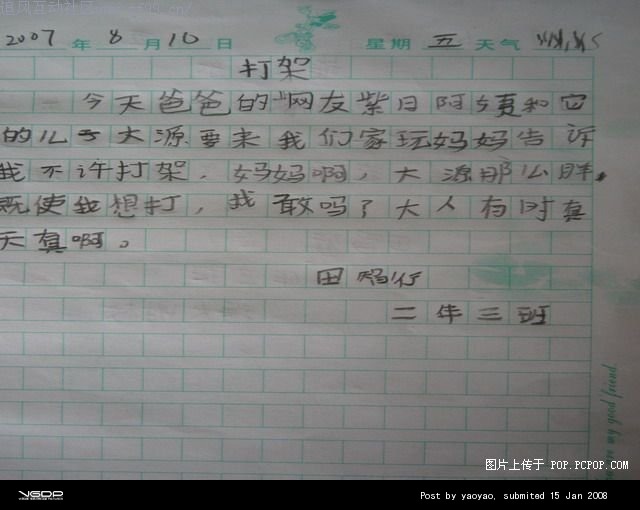 追风互动社区
2007年8月10日 星期五 天气
打架
今天爸爸的"网友紫日阿姨和它
的儿子大源要来我们家玩妈妈告诉
我不许打架，妈妈啊，大源那么胖，
既使我想打，我敢吗？大人有时真
天真啊。
田
二年三班
my good friend
图片上传于 POP.PCPOP.COM
VGDP
Post by yaoyao, submited 15 Jan 2008